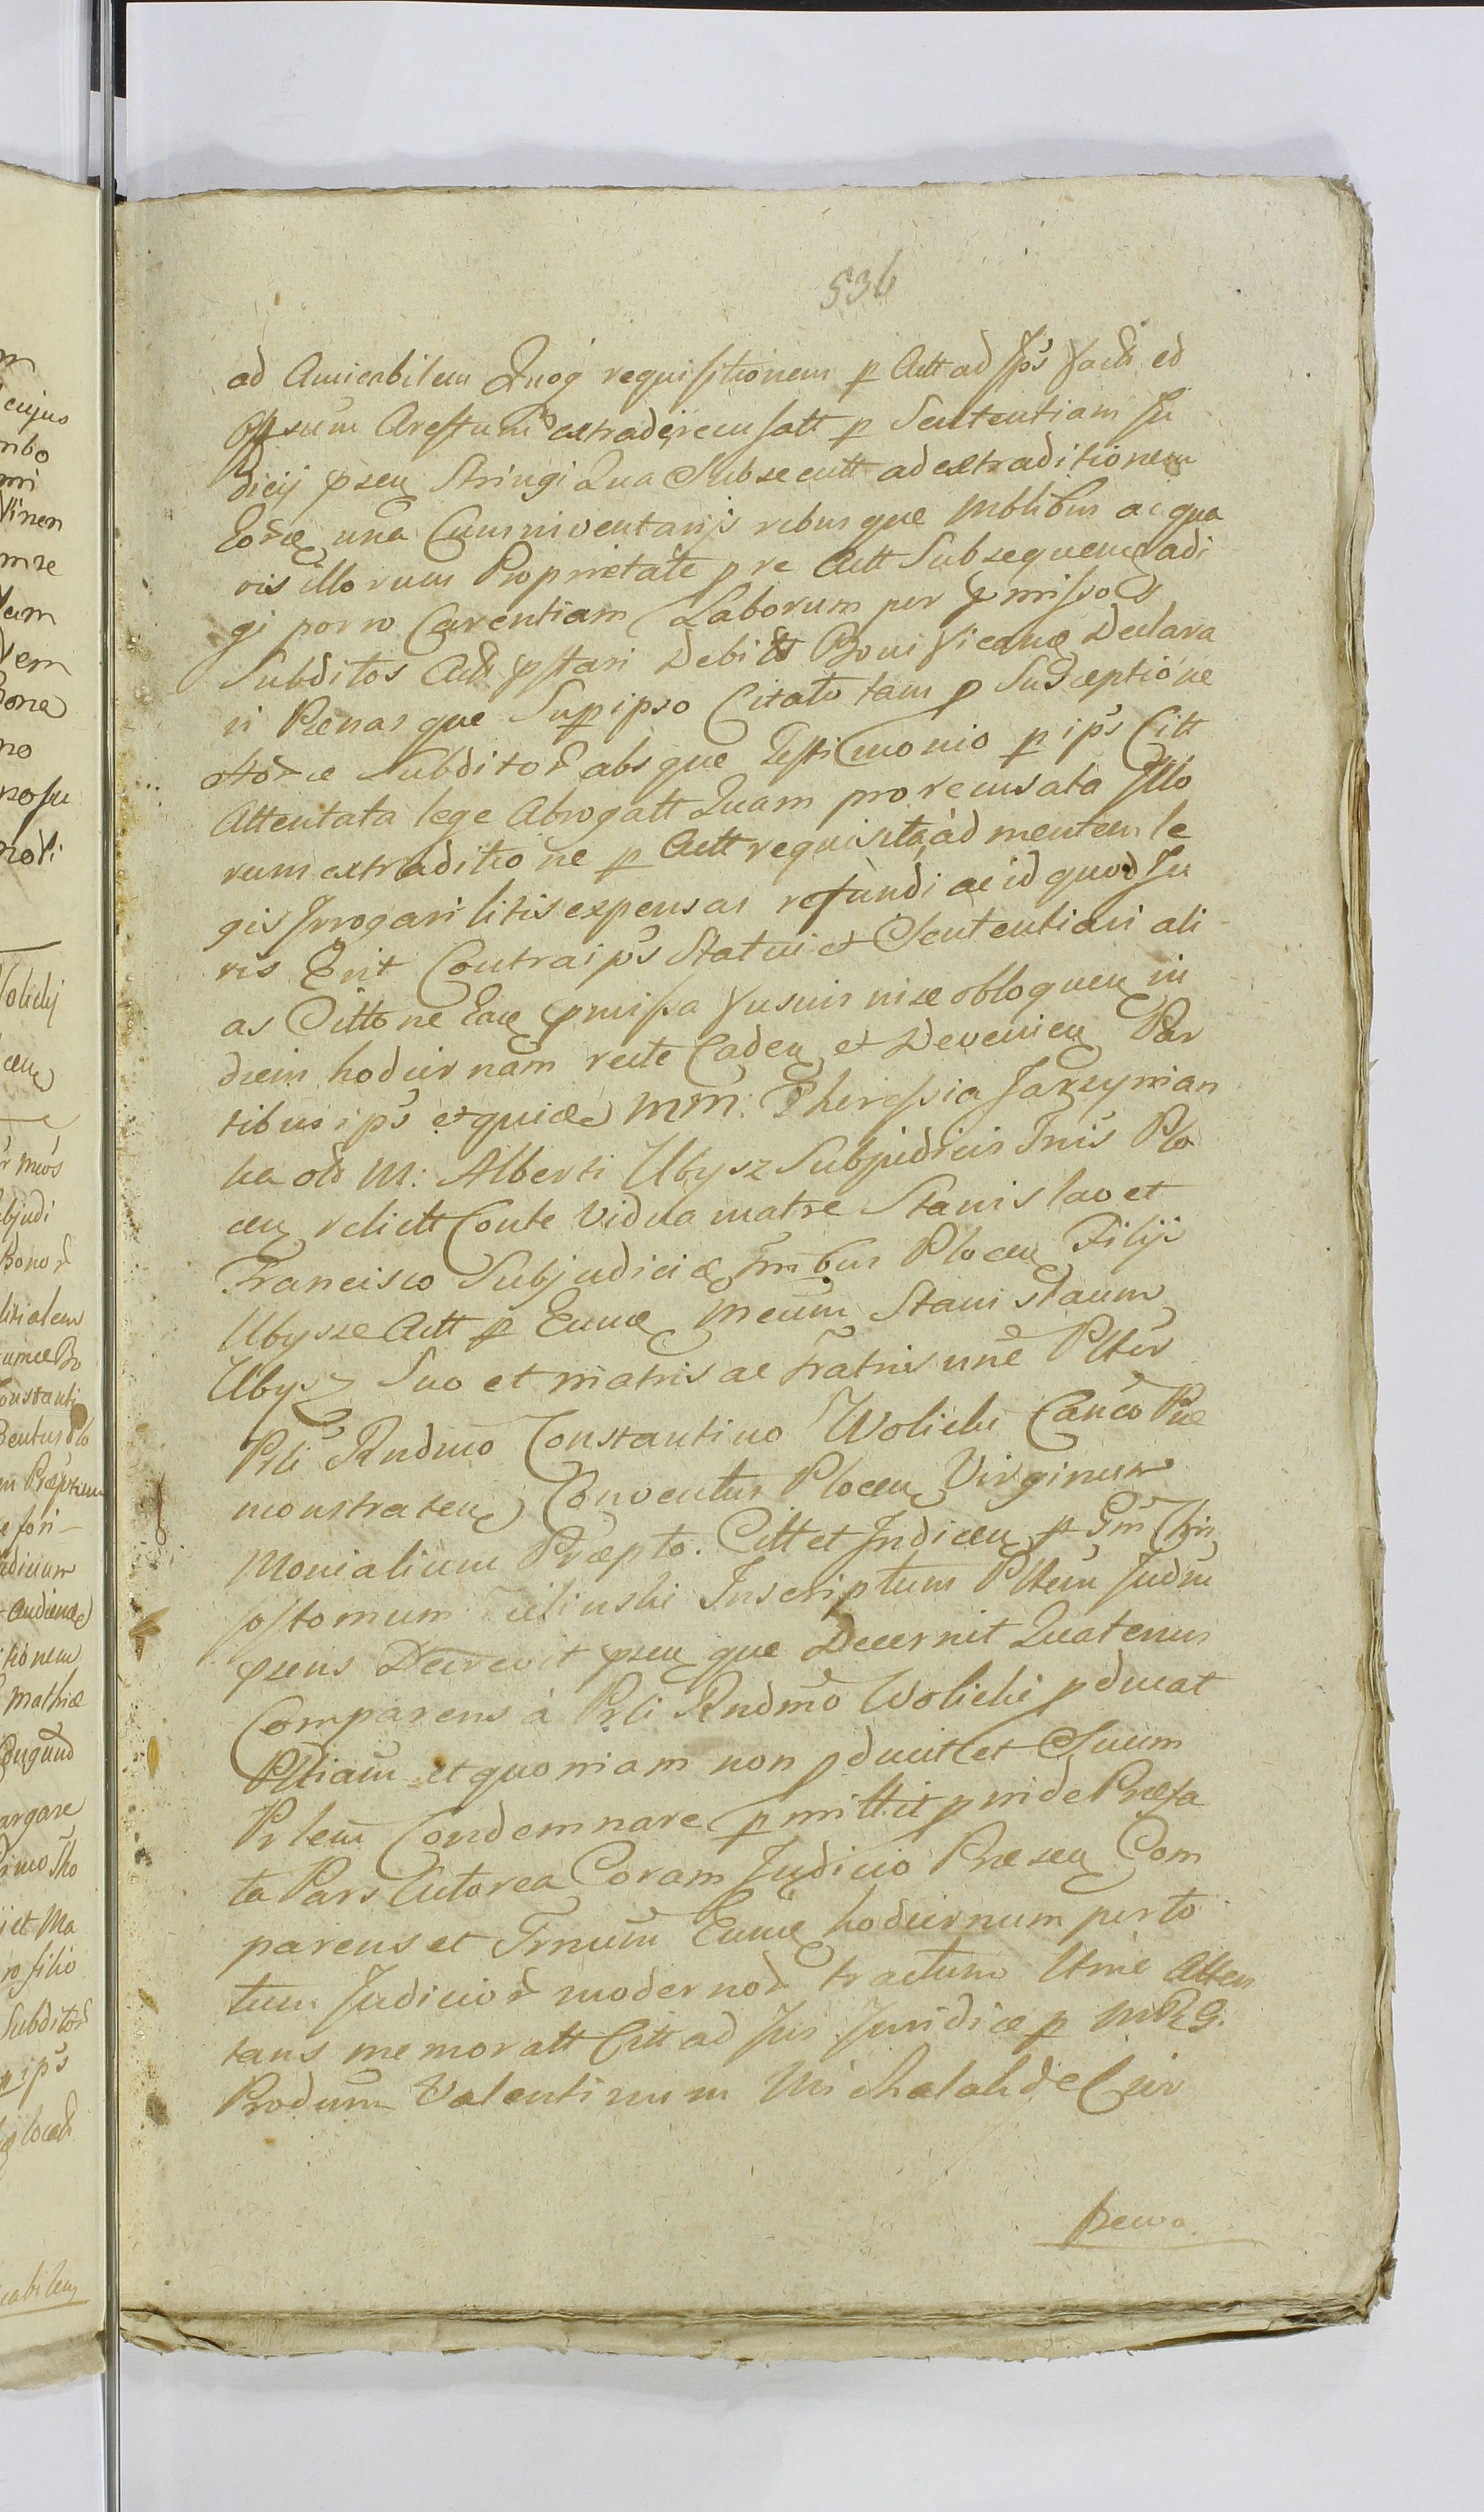 536
ad Amicabilem Quoq requisitionem p Actt ad Ips fact ed
sum Arestum extradi recusatt p Sententiam Ju
dicij psen Stringi Qua Subsecutt ad extraditionem
Eordę una Cum inventarijs rebusque mobilibus ac qua
vis illorum Proprietate p re Actt Subsequen adi
gi porro Carentiam Laborum per pmissos
Subditos Actt pstari Debitt Boni Vicanę Declara
ri Pœnas que Sup ipso Citato tam p Susceptione
Subditor absque Testimonio p ips Citt
Attentata lege Abrogatt Quam pro recusata Illo
rum extraditione p Actt requisita ad mentem le
gis Irrogari litis expensas refundi ac id quod Ju
ris Erit Contra ips Statui et Sententiari ali
as Citt ne Eaę pmissa fusius in se obloquen in
diem hodiernam recte Caden et Devenien Par
tibus ips et quidę MM: Theressia Jarzyman
ka old M: Alberti Ubysz Subjudicis Tris Plo
cen relictt Conte Vidua matre Stanislao et
Francisco Subjudicię Tribus Plocen Filijs
Ubysze Actt p Eunę Meum Stanislaum
Ubysz Suo et matris ac Fratris une Ptter
Prli Rndmo Constantino Wolicki Canco Præ
monstraten Conventus Plocen Virginum
Monialium Præpto. Citt et Indicen p Gm Chri
sostomum Zielinski Inscriptum Pttem Judm
psens Decrevit psen que Decernit Quatenus
Comparens à Prli Rndmo Wolicki pducat
Pttiam et quoniam non pducit et Suum
Prlem Condemnare pmittit pinde Præfa
ta Pars Actorea Coram Judicio Præsen Com
parens et Trnum Eunę hodiernum per to
tum Judicior modernor tractum Utrie Atten
tans memoratt Citt ad Jus Juridice p MRG.
Produm Valentinum Michalak de Cier
pcewo.